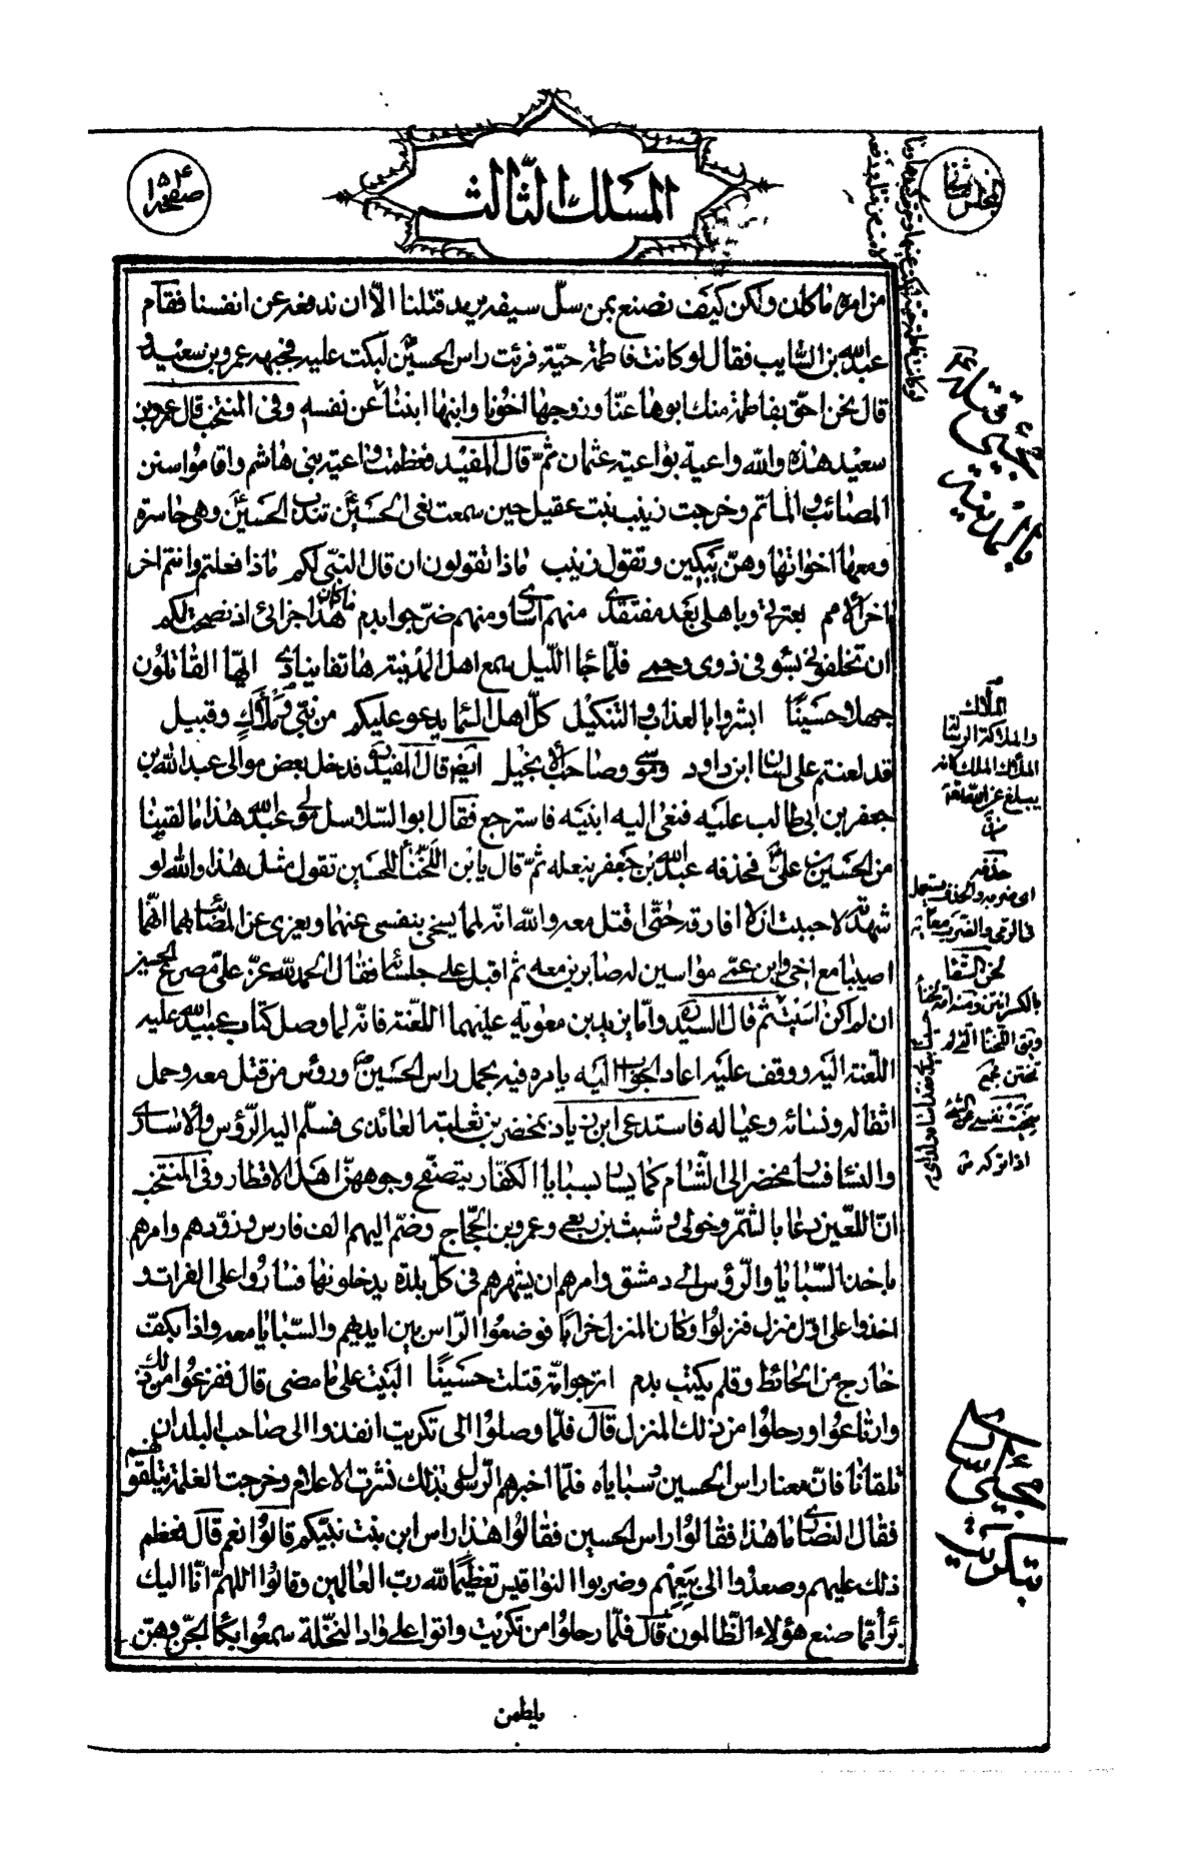 المسلك الثالث
صفحه ١٥٤
من امره ما كان ولكن كيف نصنع بمن سلّ سيفه يريد قتلنا الّا ان ندفعه عن انفسنا فقام
عبد الله بن السّايب فقال لو كانت فاطمة حيّة فرئت راس الحسين لبكت عليه فجبهه عمرو بن سعيد و
قال نحن احقّ بفاطمة منك ابوها عمّنا وزوجها اخونا وابنها ابننا عن نفسه وفى المنتخب قال عمرو بن
سعيد هذه والله واعية بواعية عثمان ثمّ قال المفيد فعظمت واعية بنى هاشم واقاموا سنن
المصائب والمأتم وخرجت زينب بنت عقيل حين سمعت نعى الحسين تندب الحسين وهى حاسرة
ومعها اخواتها وهنّ يبكين وتقول زينب ماذا تقولون ان قال النّبى لكم ماذا فعلتم وانتم اخر
اخر الأمم بعترتى وباهلى بعد مفتقدى منهم اسارى ومنهم ضرّجوا بدم ما كان هذا جزائى اذ نصحت لكم
ان تخلفونى بسوء فى ذوى رحمى فلمّا جاء اللّيل سمع اهل المدينة هاتفا ينادى ايّها القاتلون
جهلا حسينًا ابشروا بالعذاب والتنكيل كلّ اهل السّماء يدعو عليكم من نبىّ وملأك وقبيل
قد لعنتم على لسان ابن داود وموسى وصاحب الانجيل ايضا قال المفيد فدخل بعض موالى عبد الله بن
جعفر بن ابى طالب عليه فنعى اليه ابنيه فاسترجع فقال ابو السّلاسل مولى عبد الله هذا ما لقينا
من الحسين بن علىّ فحذفه عبد الله بن جعفر بنعله ثمّ قال يابن اللّخناء للحسين تقول مثل هذا والله لو
شهدته لاحببت ان لا افارقه حتّى اقتل معه والله انّه لما يسخى بنفسى عنهما ويعزى عن المصاب بهما انّهما
اصيبا مع اخى وابن عمّى مواسين له صابرين معه ثم اقبل على جلسائه فقال الحمد لله عزّ علىّ مصرع الحسين
ان لم اكن اسيت ثم قال السيّد وامّا يزيد بن معوية عليهما اللّعنة فانّه لما وصل كتاب عبيد الله عليه
اللّعنة اليه ووقف عليه اعاد الجواب اليه يامره فيه بحمل راس الحسين ورؤس من قتل معه وحمل
اثقاله ونسائه وعياله فاستدعى ابن زياد بمخضر بن ثعلبة العائدى فسلّم اليه الرّؤس والأسارى
والنساء فسار مخضر الى الشّام كما يسار بسبايا الكفّار يتصفّح وجوههنّ اهل الاقطار وفى المنتخب
انّ اللعين دعا بالشّمر وخولى و شبث بن ربعى وعمرو بن الحجّاج وضمّ اليهم الف فارس وزوّدهم وامرهم
باخذ السّبايا والرّؤس الى دمشق وامرهم ان يشهرهم فى كلّ بلدة يدخلونها فساروا على الفرات و
اخذوا على اوّل منزل فنزلوا وكان المنزل خرابا فوضعوا الرّاس بين ايديهم والسّبايا معه واذا بكفّ
خارج من الحائط وقلم يكتب بدم اترجو امّة قتلت حسينًا البيت على ما مضى قال ففزعوا من ذلك
وارتاعوا ورحلوا من ذلك المنزل قال فلمّا وصلوا الى تكريت انفذوا الى صاحب البلد ان
تلقانا فانّ معنا راس الحسين وسباياه فلمّا اخبرهم الرّسول بذلك نشرت الاعلام وخرجت الغلمة يتلقونهم
فقال النصارى ما هذا فقالوا راس الحسين فقالوا هذا راس ابن بنت نبيّكم قالوا نعم قال فعظم
ذلك عليهم وصعدوا الى بيعهم وضربوا النواقيس تعظيمًا لله ربّ العالمين وقالوا اللهمّ انّا اليك
برآء ممّا صنع هؤلاء الظّالمون قال فلمّا رحلوا من تكريت واتوا على وادى النخلة سمعوا بكاء الجنّ وهنّ
يلطمن
الملأك
والملاكة الرسالة
حذفه
لخن السقاء
اذا تركه ق
بتكريت